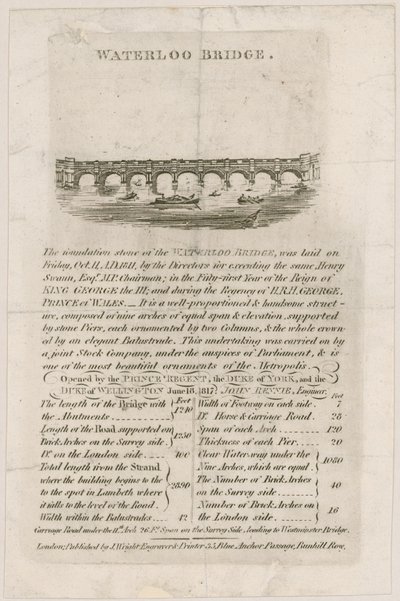 WATERLOO BRIDGE.
The foundation stone of the WATERLOO BRIDGE, was laid on
Friday, Oct. 11, A.D. 1811, by the Directors for executing the same Henry
Swann, Esqr. M.P. Chairman; in the Fifty-first Year of the Reign of
KING GEORGE the III; and during the Regency of H.R.H. GEORGE,
PRINCE of WALES. _ It is a well-proportioned & handsome struct-
ure, composed of nine arches of equal span & elevation, supported
by stone Piers, each ornamented by two Columns, & the whole crown-
ed by an elegant Balustrade. This undertaking was carried on by
a joint Stock Company, under the auspices of Parliament, & is
one of the most beautiful ornaments of the Metropolis.
Opened by the PRINCE REGENT, the DUKE of YORK, and the
DUKE of WELLINGTON June 18, 1817. JOHN RENNIE, Engineer.
The length of the Bridge with Feet
the Abutments 1240
Length of the Road supported on
Brick Arches on the Surrey side. 1250
Do. on the London side. 400
Total length from the Strand
where the building begins to the
to the spot in Lambeth where 2890
it falls to the level of the Road.
Width within the Balustrades 42
Feet
Width of Footway on each side 7
Do. Horse & Carriage Road. 28
Span of each Arch 120
Thickness of each Pier 20
Clear Water-way under the
Nine Arches, which are equal 1080
The Number of Brick Arches
on the Surrey side 40
Number of Brick Arches on
the London side 16
Carriage Road under the 11th. Arch 26 Ft. Span on the Surrey Side, leading to Westminster Bridge.
London; Published by J. Wright Engraver & Printer 35, Blue Anchor Passage, Bunhill Row.